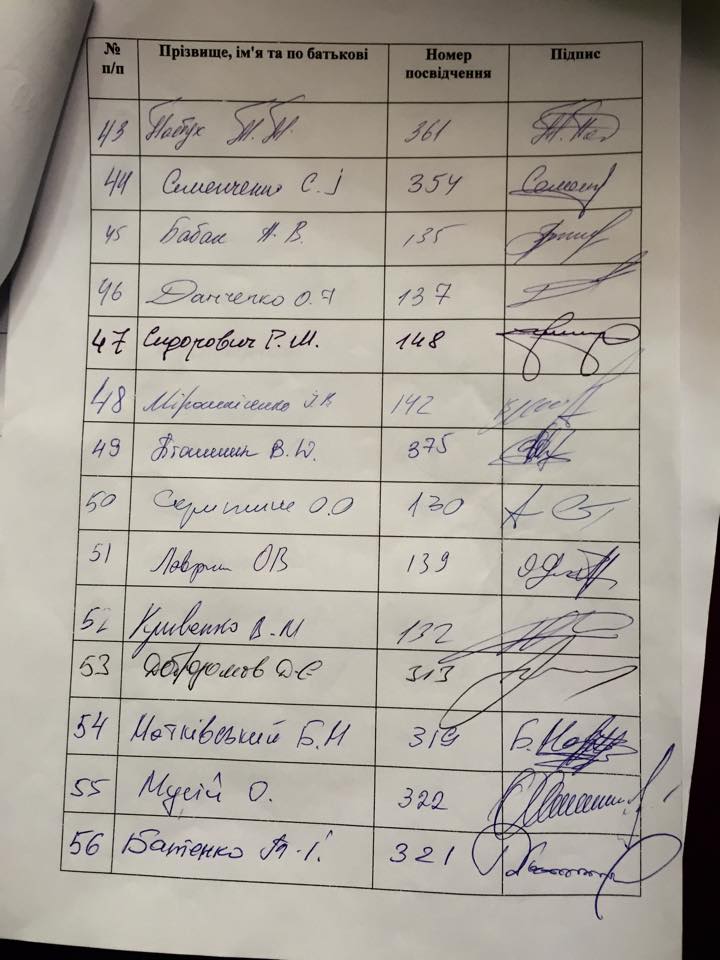 № п/п Прізвище, ім'я та по батькові Номер посвідчення Підпис
43 Пастух Т.Т. 361
44 Семенченко С. 354
45 Бабак А.В. 135
46 Данченко О.І 137
47 Сидорович Р.М. 148
48 Мірошніченко І.В 142
49 Пташник В.Ю. 375
50 О.О 130
51 Лаврик ОВ 139
52 Кривенко В.М 132
53 Добродомов Д.Є 313
54 Матківський Б.М 319
55 Мусій О. 322
56 Батенко Т.І. 321